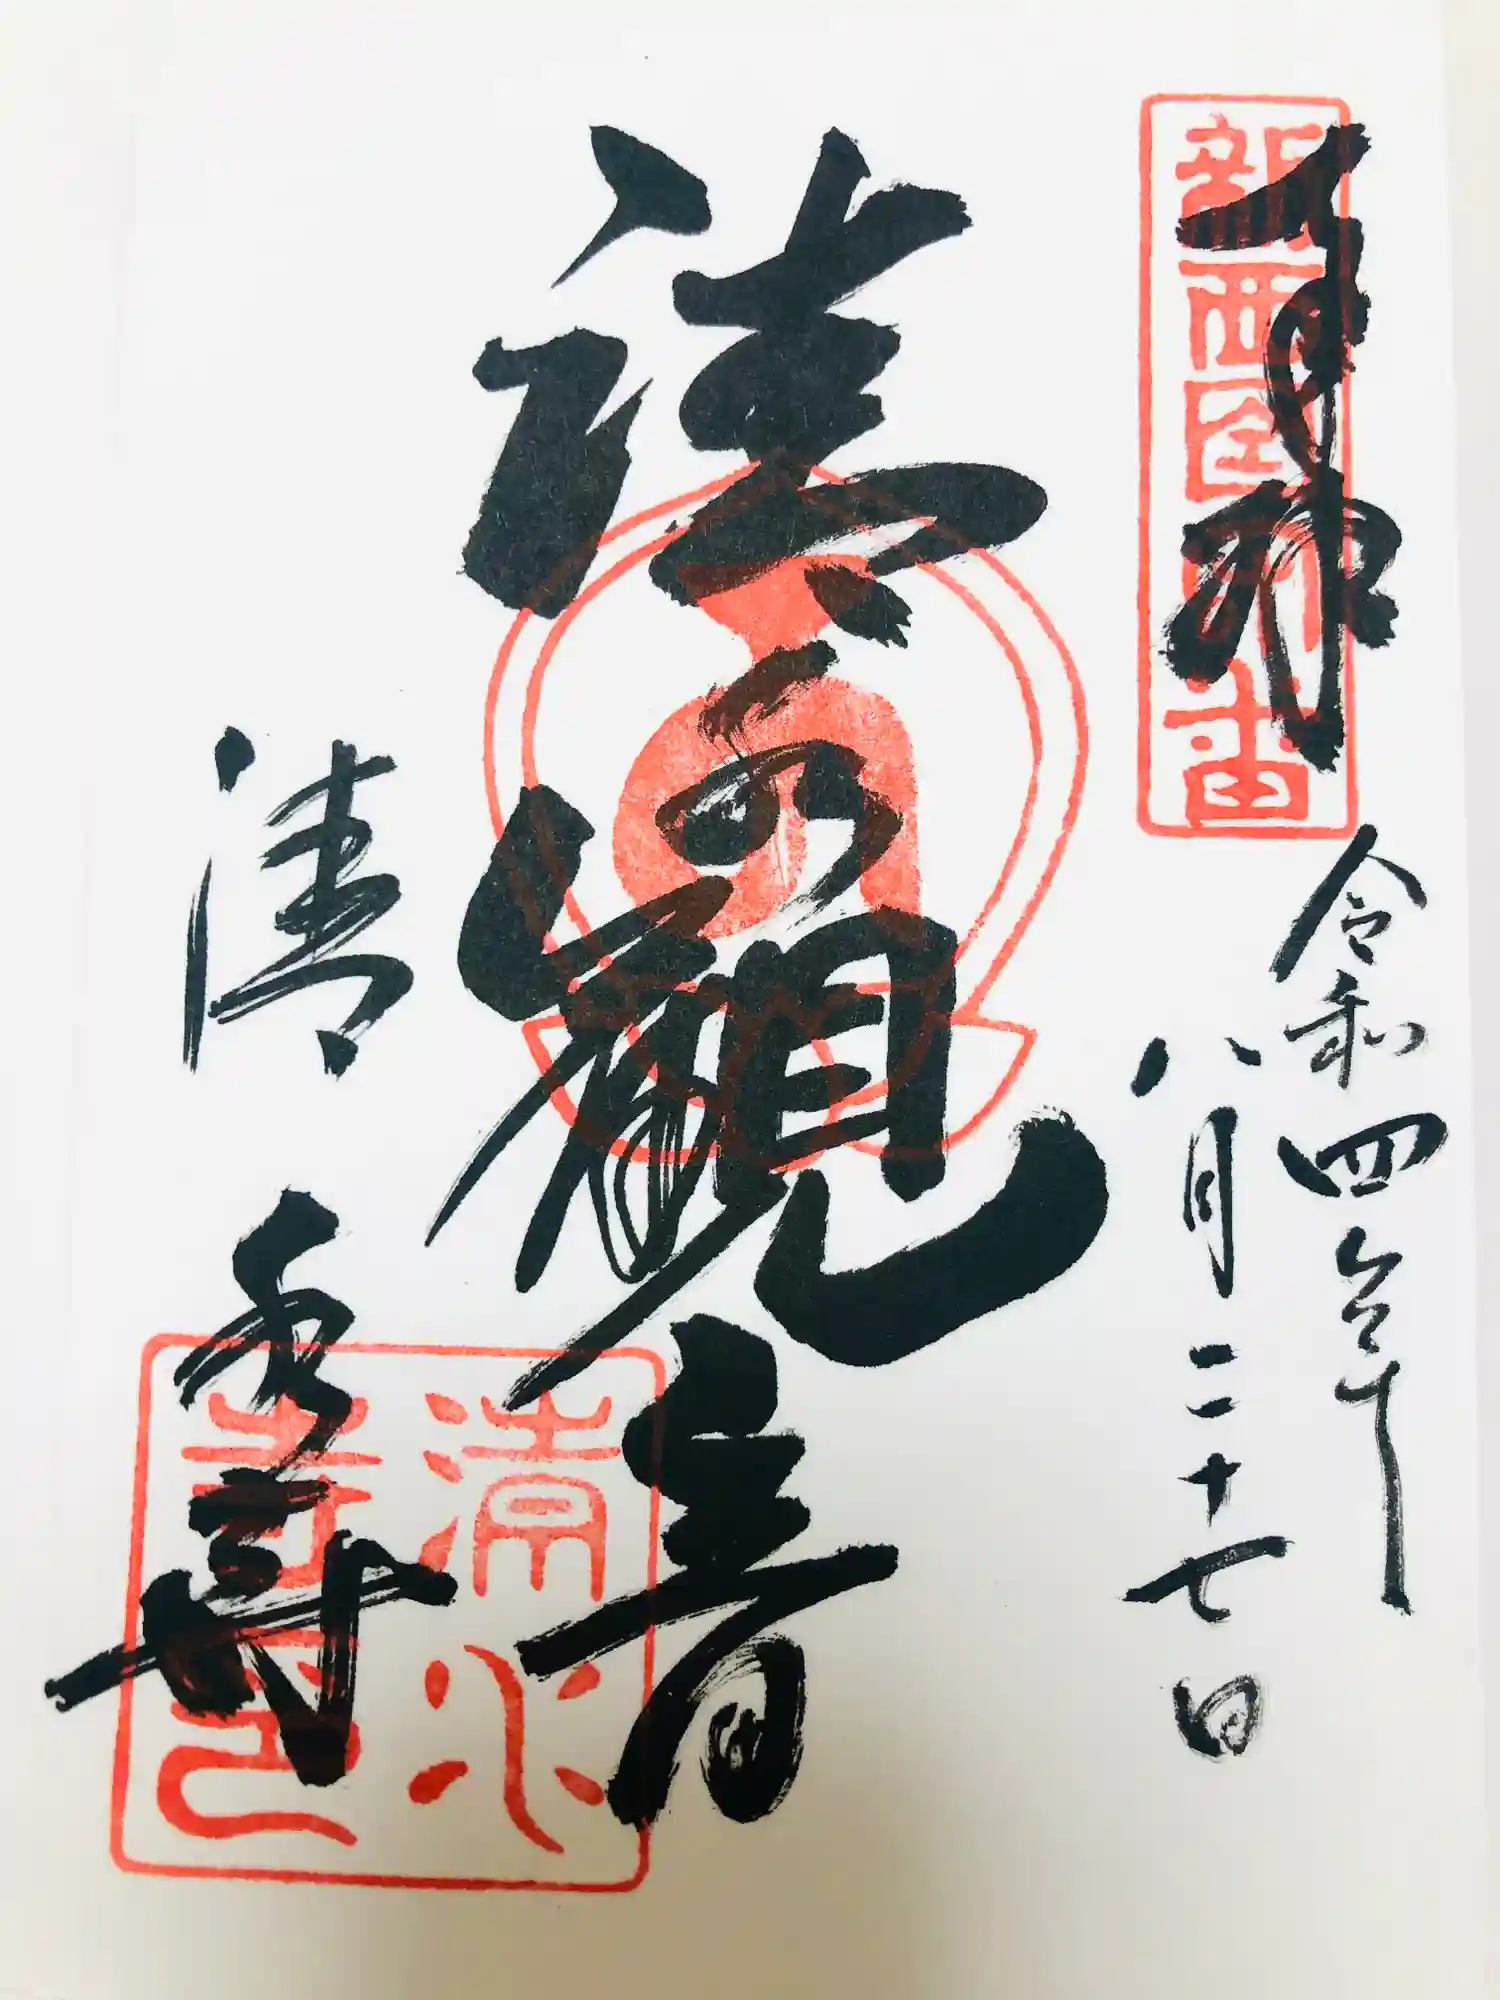 奉拝
新西国
番
令和四年
八月二十七日
の観音
清水寺
清水寺印